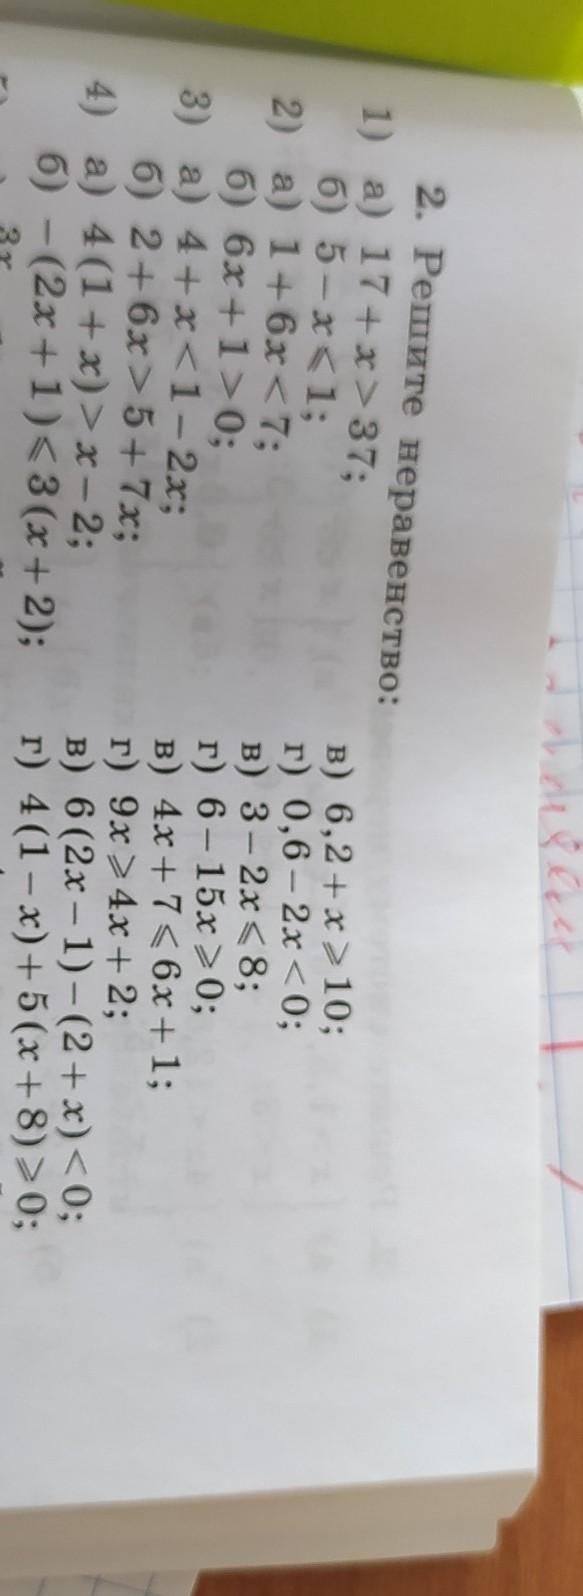 2. Решите неравенство:
1) а) 17 + x > 37; в) 6,2 + x ⩾ 10;
б) 5 − x ⩽ 1; г) 0,6 − 2x < 0;
2) а) 1 + 6x < 7; в) 3 − 2x ⩽ 8;
б) 6x + 1 > 0; г) 6 − 15x ⩾ 0;
3) а) 4 + x < 1 − 2x; в) 4x + 7 ⩽ 6x + 1;
б) 2 + 6x > 5 + 7x; г) 9x ⩾ 4x + 2;
4) а) 4(1 + x) > x − 2; в) 6(2x − 1) − (2 + x) < 0;
б) −(2x + 1) ⩽ 3(x + 2); г) 4(1 − x) + 5(x + 8) ⩾ 0;